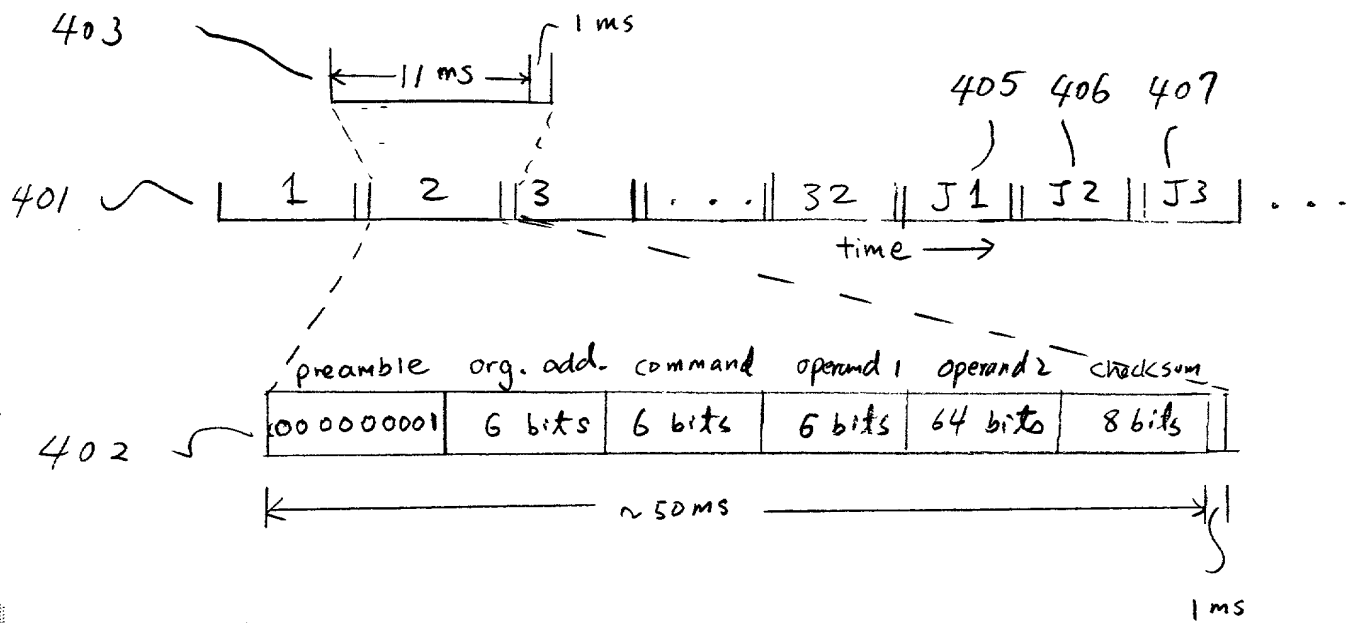 403
1 ms
11 ms
405 406 407
401
1 2 3 . . . 32 J1 J2 J3 . . .
time
preamble org. add. command operand 1 operand 2 checksum
402
000000001 6 bits 6 bits 6 bits 64 bits 8 bits
~ 50 ms
1 ms